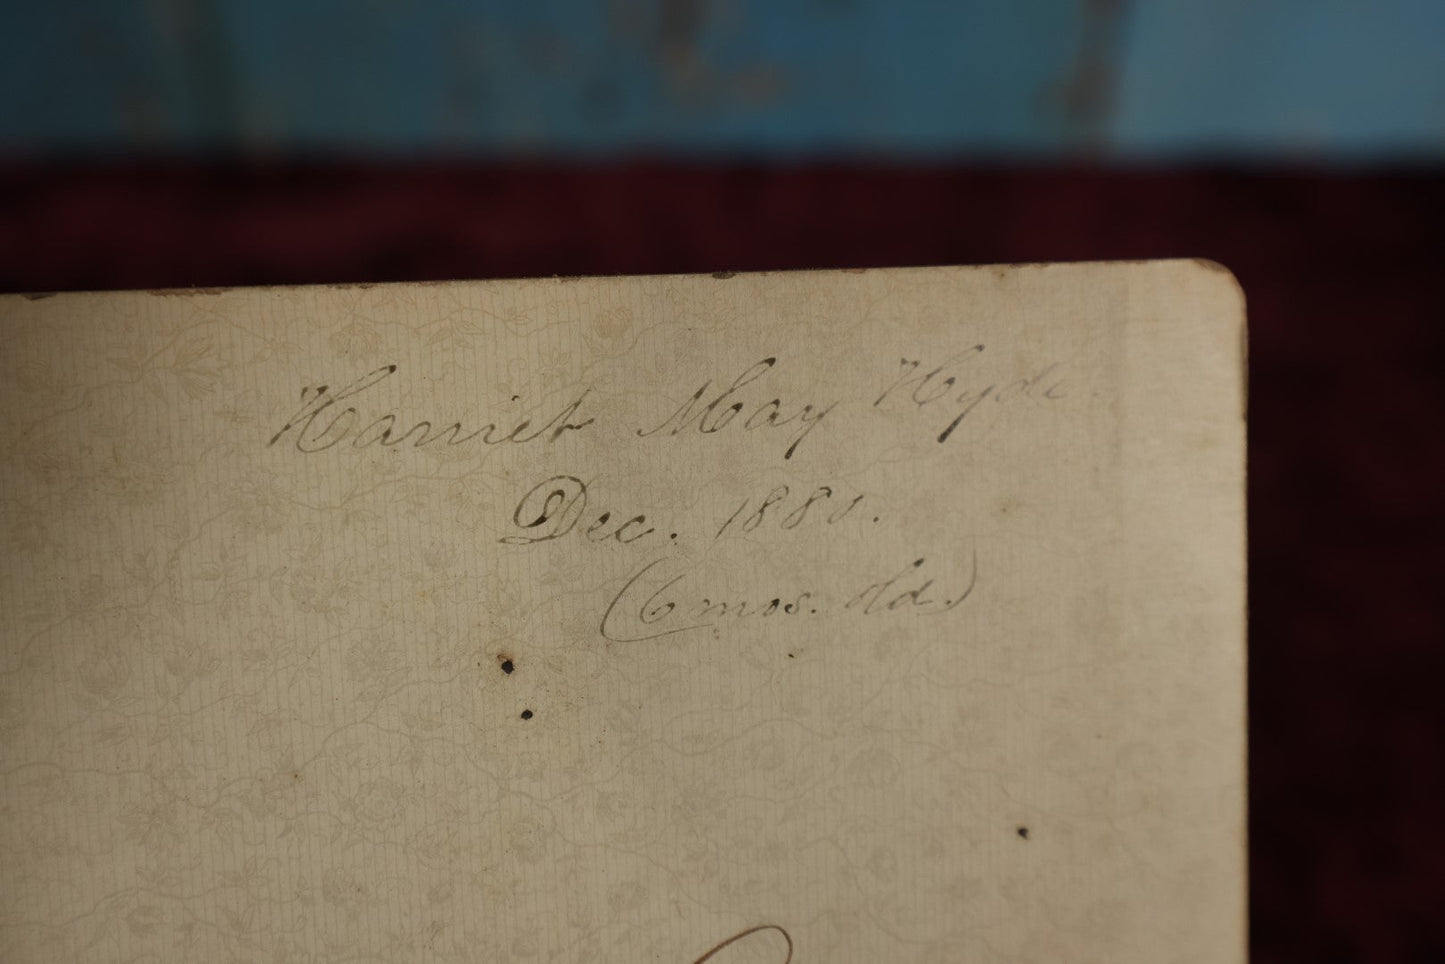 Harriet May Hyde.
Dec. 1880.
(6 mos. old.)